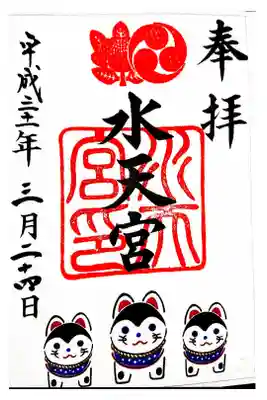 奉拝
水天宮
平成三十一年 三月二十四日
水天宮印